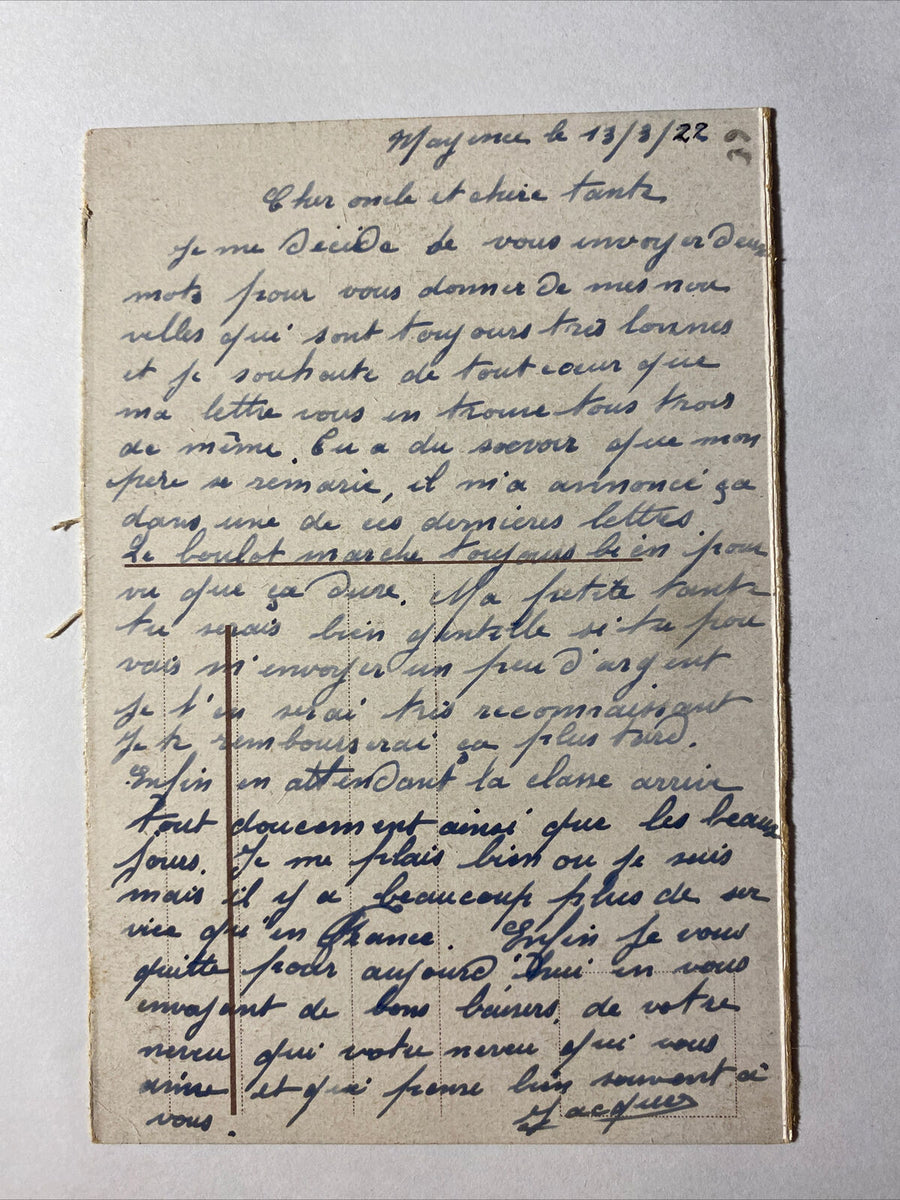 Mayence le 13/3/22
39
Cher oncle et chère tante
Je me décide de vous envoyer deux
mots pour vous donner de mes nou
velles qui sont toujours très bonnes
et je souhaite de tout cœur que
ma lettre vous en trouve tous trois
de même. Tu a du savoir que mon
père se remarie, il m'a annoncé ça
dans une de ces dernières lettres.
Le boulot marche toujours bien pour
vu que ça dure. Ma petite tante
tu serais bien gentille si tu pou
vais m'envoyer un peu d'argent
je t'en serai très reconnaissant
Je te rembourserai ça plus tard.
Enfin en attendant la classe arrive
tout doucement ainsi que les beaux
jours. Je me plais bien ou je suis
mais il y a beaucoup plus de ser
vice qu'en France. Enfin je vous
quitte pour aujourd'hui en vous
envoyant de bons baisers, de votre
neveu qui votre neveu qui vous
aime et qui pense bien souvent à
vous. Jacques